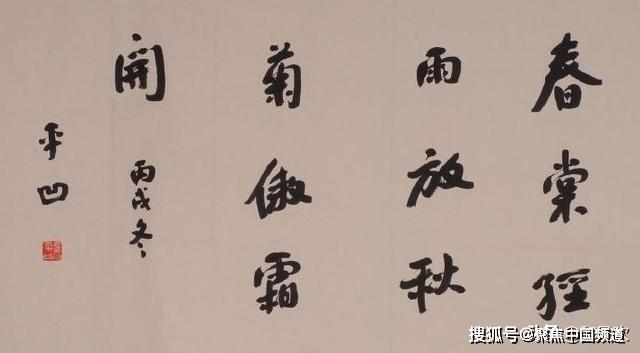 春棠經
雨放秋
菊傲霜
開 丙戌冬
平凹
搜狐号@聚焦中国频道